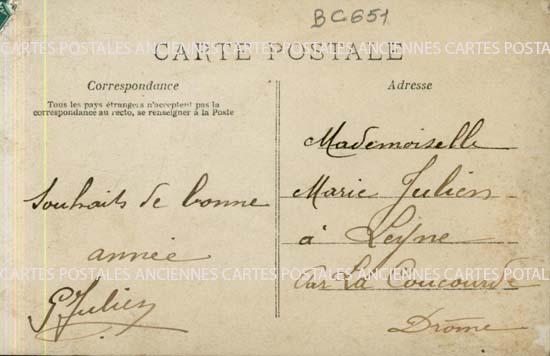 BC651
CARTES POSTALES ANCIENNES CARTES POSTALES ANCIENNES CARTES POSTALES
CARTE POSTALE
Correspondance
Tous les pays étrangers n'acceptent pas la
correspondance au recto, se renseigner à la Poste
Souhaits de bonne
année
G Julien
Adresse
Mademoiselle
Marie Julien
à Leyne
Par La Coucourde
Drôme
CARTES POSTALES ANCIENNES CARTES POSTALES ANCIENNES CARTES POSTALES
CARTES POSTALES ANCIENNES CARTES POSTALES ANCIENNES CARTES POSTALES